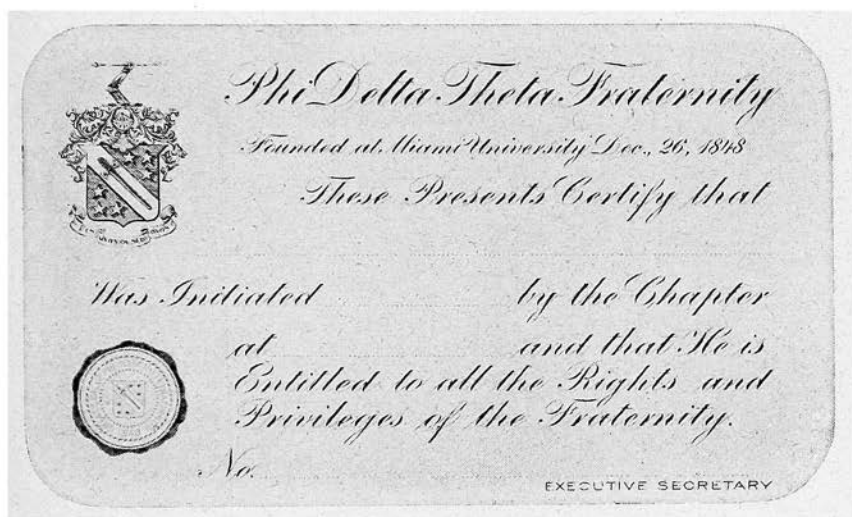 Phi Delta Theta Fraternity
Founded at Miami University Dec., 26, 1848
These Presents Certify that
Was Initiated by the Chapter
at and that He is
Entitled to all the Rights and
Privileges of the Fraternity.
No.
EXECUTIVE SECRETARY